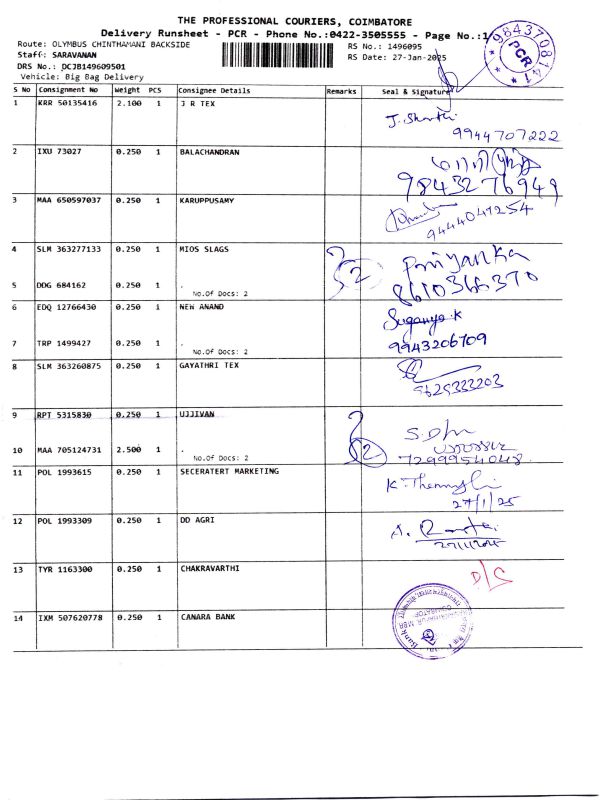 THE PROFESSIONAL COURIERS, COIMBATORE
Delivery Runsheet - PCR - Phone No.:0422-3505555 - Page No.:1/
Route: OLYMBUS CHINTHAMANI BACKSIDE
RS No.: 1496095
Staff: SARAVANAN
RS Date: 27-Jan-2025
DRS No.: DCJB149609501
Vehicle: Big Bag Delivery
9843708141
PCR
S No Consignment No Weight PCS Consignee Details Remarks Seal & Signature
1 KRR 50135416 2.100 1 J R TEX
9944707222
2 IXU 73027 0.250 1 BALACHANDRAN
9843276949
3 MAA 650597037 0.250 1 KARUPPUSAMY
9444041254
4 SLM 363277133 0.250 1 MIOS SLAGS 2 Priyanka
5 DDG 684162 0.250 1 . 8610366370
No.Of Docs: 2
6 EDQ 12766430 0.250 1 NEW ANAND Suganya.K
7 TRP 1499427 0.250 1 . 9943206709
No.Of Docs: 2
8 SLM 363260875 0.250 1 GAYATHRI TEX
9629333203
9 RPT 5315830 0.250 1 UJJIVAN
10 MAA 705124731 2.500 1 . 2
No.Of Docs: 2 7299954048
11 POL 1993615 0.250 1 SECERATERT MARKETING
27/1/25
12 POL 1993309 0.250 1 DD AGRI
13 TYR 1163300 0.250 1 CHAKRAVARTHI D/C
14 IXM 507620778 0.250 1 CANARA BANK